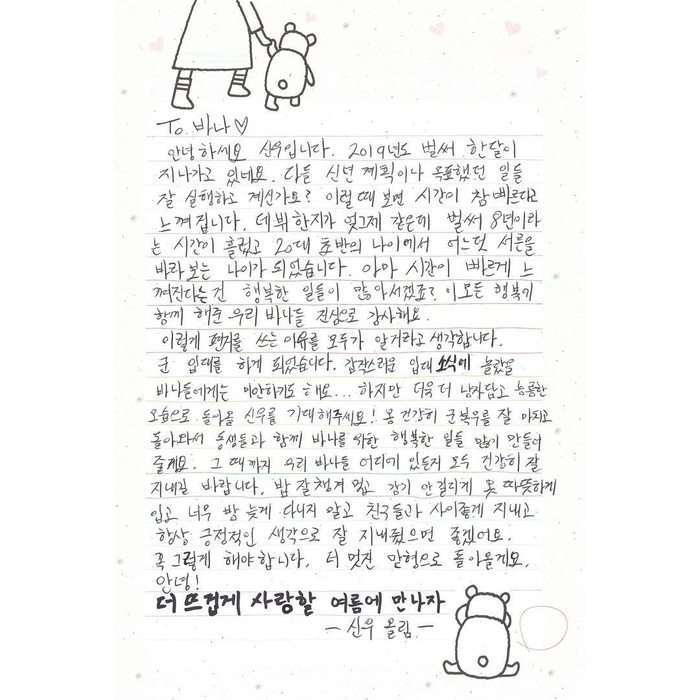 To. 바나♡
안녕하세요 신우입니다. 2019년도 벌써 한달이
지나가고 있네요. 다들 신년 계획이나 목표했던 일들
잘 실행하고 계신가요? 이럴때 보면 시간이 참 빠르다고
느껴집니다. 데뷔한지가 엊그제 같은데 벌써 8년이라
는 시간이 흘렀고 20대 초반의 나이에서 어느덧 서른을
바라보는 나이가 되었습니다. 아마 시간이 빠르게 느
껴진다는건 행복한 일들이 많아서겠죠? 이 모든 행복에
함께 해준 우리 바나들 진심으로 감사해요.
이렇게 편지를 쓰는 이유를 모두가 알거라고 생각합니다.
군 입대를 하게 되었습니다. 갑작스러운 입대 소식에 놀랐을
바나들에게는 미안하기도 해요... 하지만 더욱 더 남자답고 늠름한
모습으로 돌아올 신우를 기대해주세요! 몸 건강히 군복무를 잘 마치고
돌아와서 동생들과 함께 바나를 위한 행복한 일들 많이 만들어
줄게요. 그 때까지 우리 바나들 어디에 있든지 모두 건강히 잘
지내길 바랍니다. 밥 잘 챙겨 먹고 감기 안걸리게 옷 따뜻하게
입고 너무 밤 늦게 다니지 말고 친구들과 사이좋게 지내고
항상 긍정적인 생각으로 잘 지내줬으면 좋겠어요.
꼭 그렇게 해야합니다. 더 멋진 맏형으로 돌아올게요.
안녕!
더 뜨겁게 사랑할 여름에 만나자
- 신우 올림 -